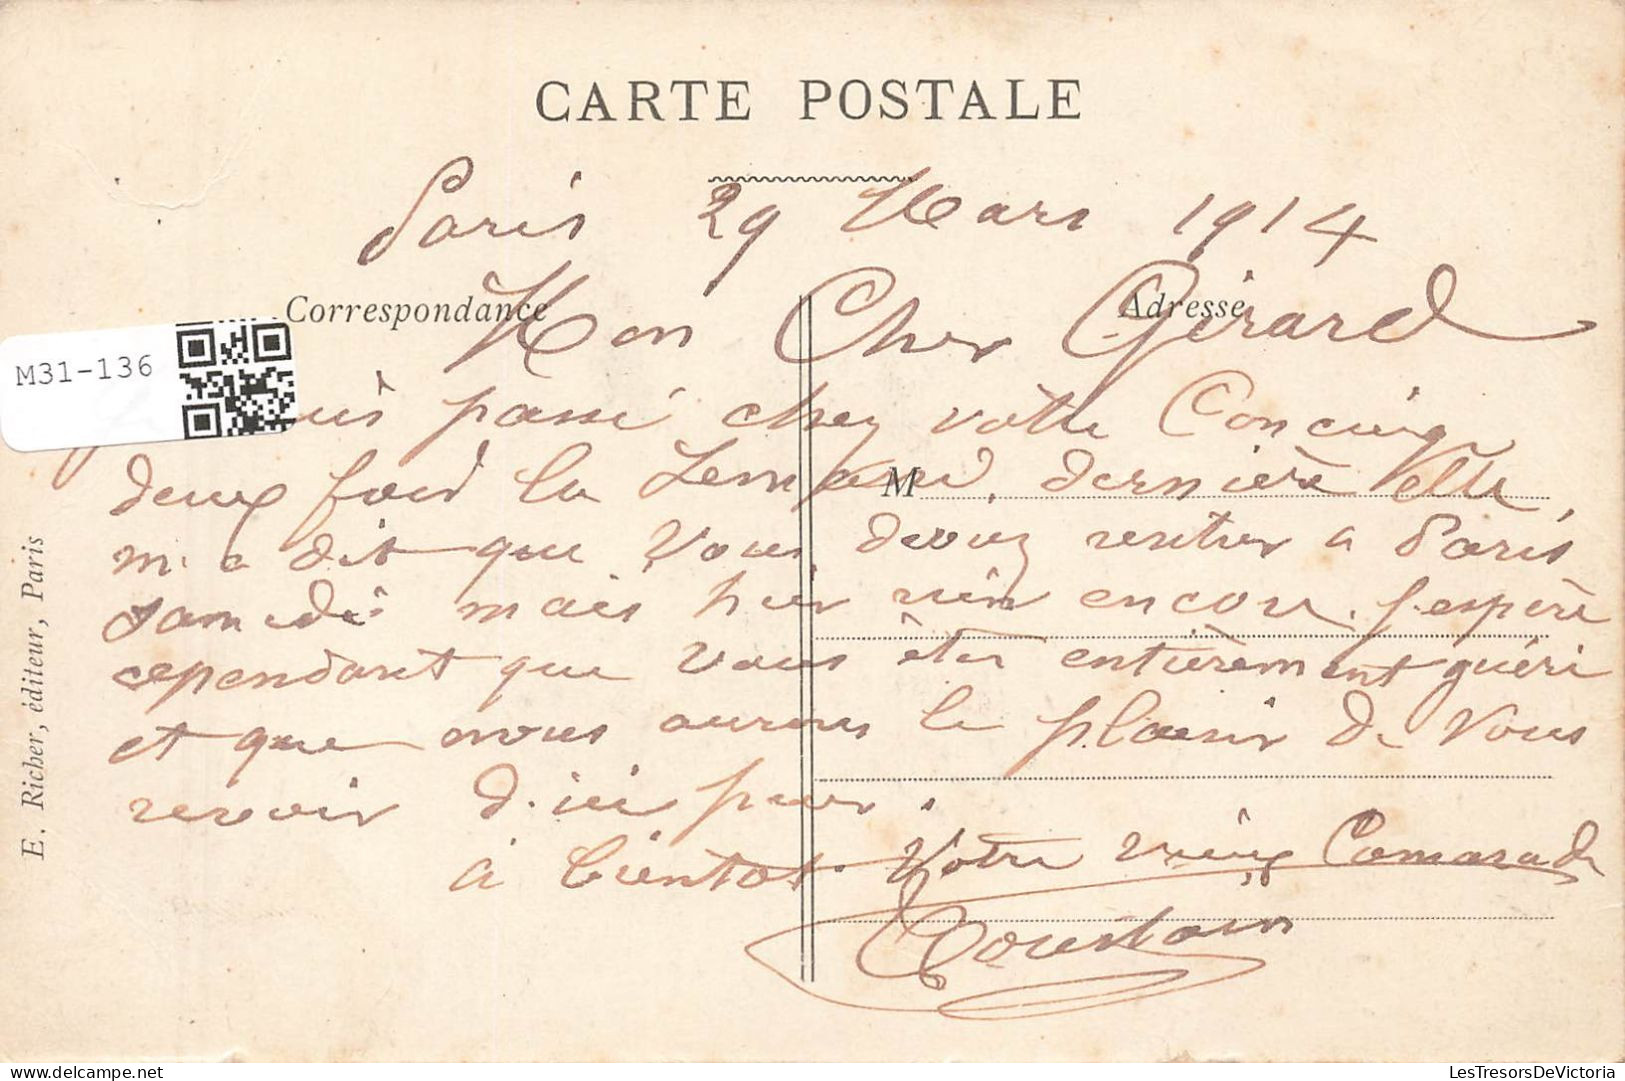 CARTE POSTALE
Paris 29 Mars 1914
Correspondance
Adresse
Mon Cher Gérard
M31-136
passé chez votre Concierge
deux fois la semaine dernière elle
M
m'a dit que vous deviez rentrer a Paris
samedi mais hier rien encore. J'espère
cependant que vous êtes entièrement guéri
et que nous aurons le plaisir de vous
revoir d'ici peu.
à bientot. Votre vieux Camarade
Coustain
E. Richer, éditeur, Paris
LesTresorsDeVictoria
delcampe.net